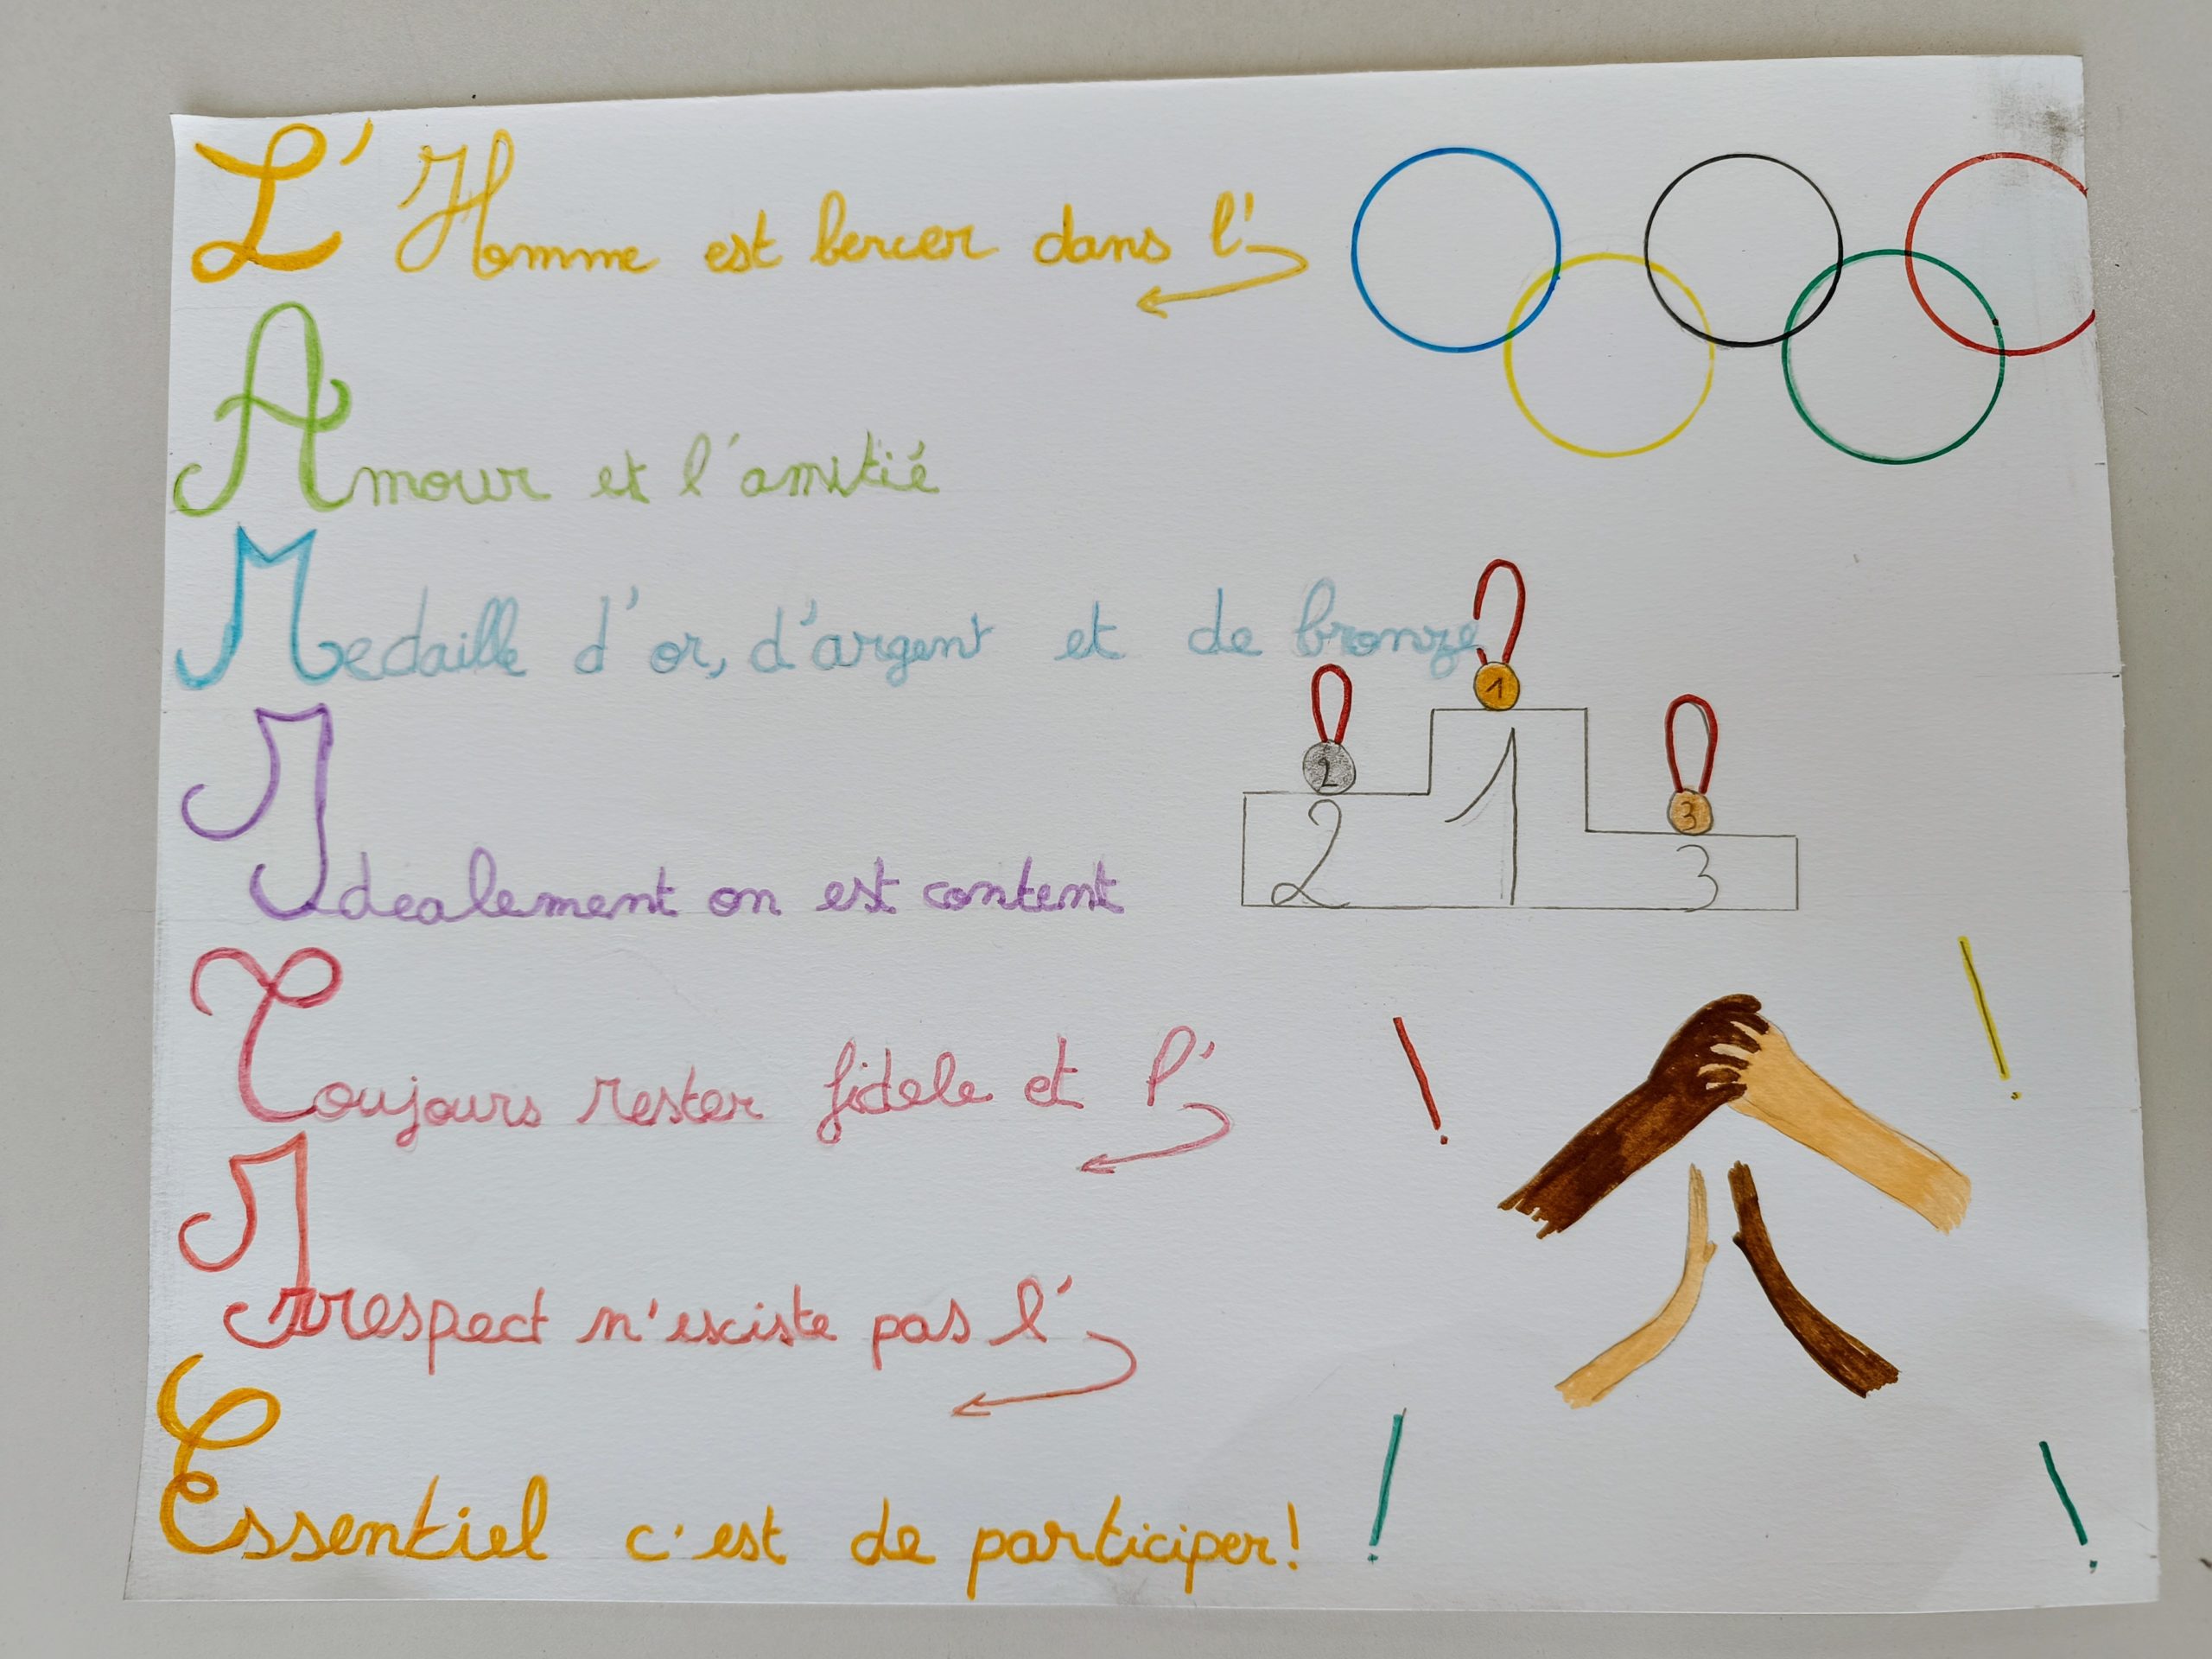 L'Homme est bercer dans l'
Amour et l'amitié
Medaille d'or, d'argent et de bronze
1
2
3
2 1 3
Idealement on est content
Toujours rester fidele et l'
Irrespect n'existe pas l'
Essentiel c'est de participer!